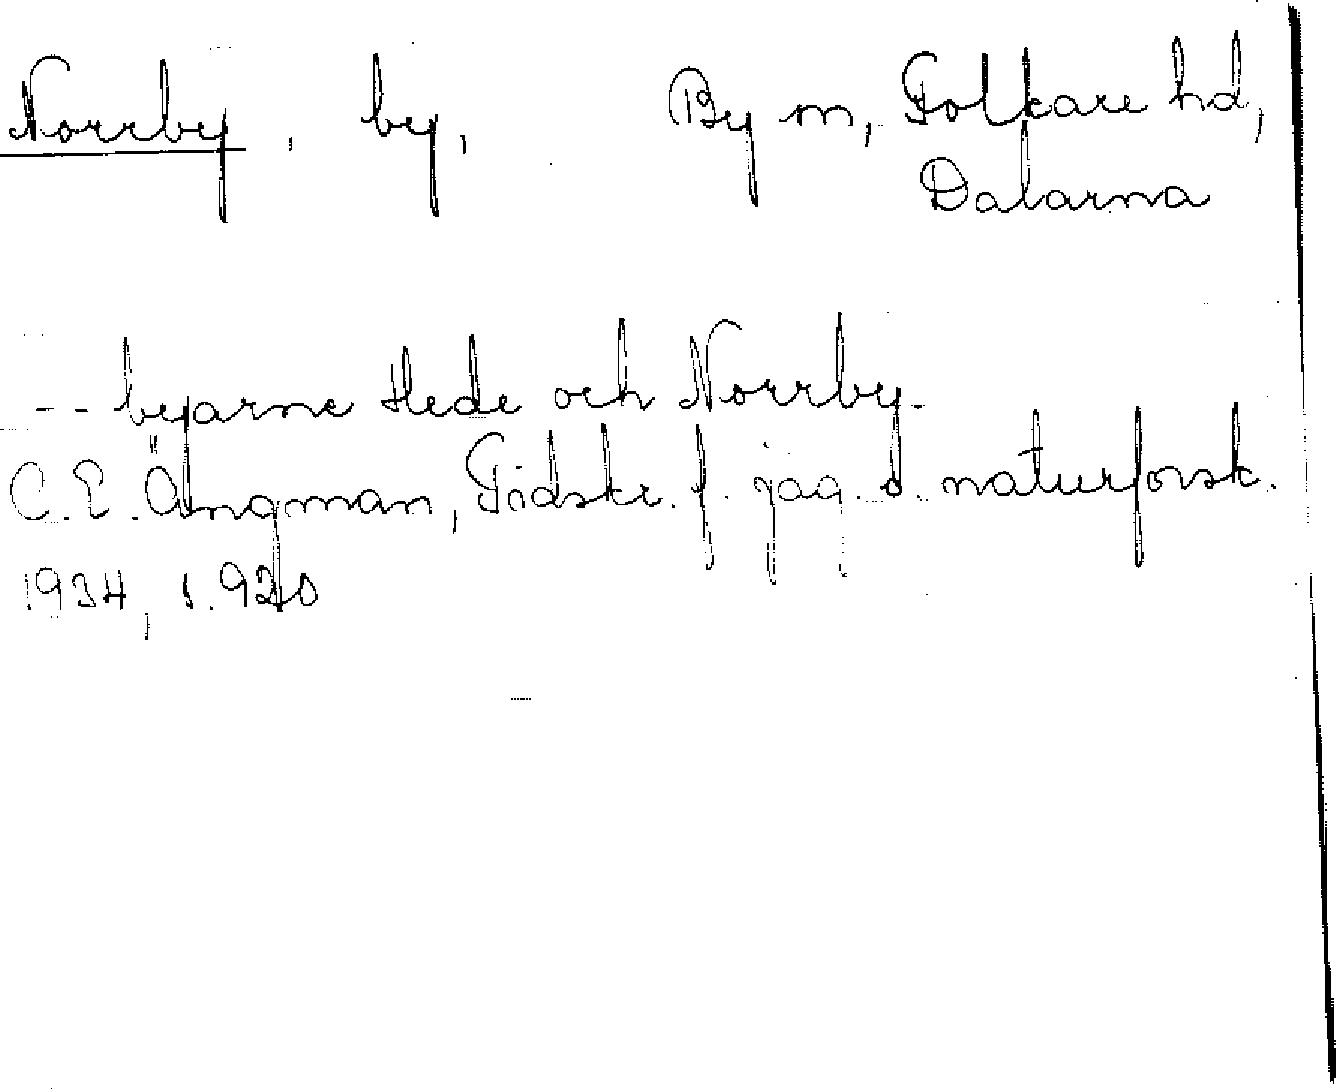 Norrby, by, By sn, Folkare hd,
Dalarna
-- byarne Hede och Norrby.
C.E. Ängman, Tidskr. f. jäg. o. naturforsk.
1934, s. 920